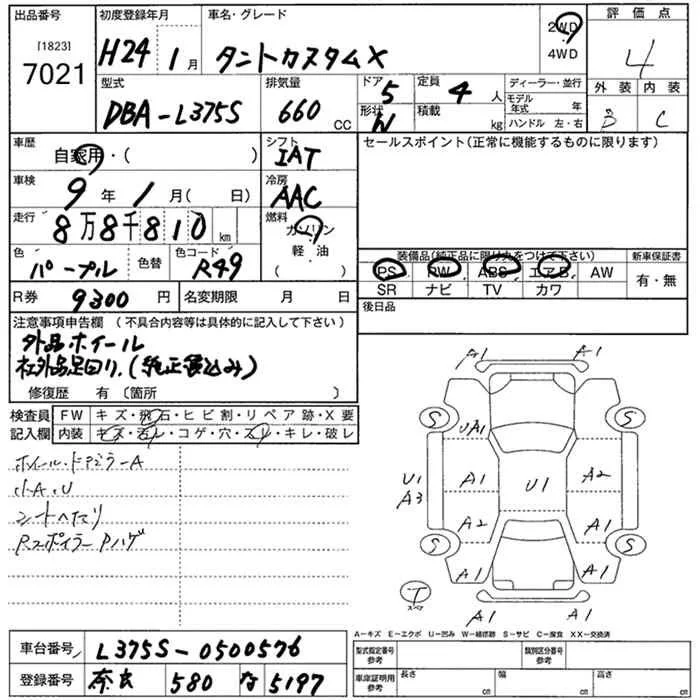 出品番号 初度登録年月 車名・グレード 評価点
[1823]
7021 H24 1月 タントカスタムX 2WD 4WD 4
型式 排気量 ドア 5 定員 4人 ディーラー・並行 外装 内装
DBA-L375S 660 CC 形状 積載 kg モデル年式 年 ハンドル 左・右 B C
車歴 シフト セールスポイント(正常に機能するものに限ります)
自家用・( ) IAT
車検 冷房
9年 1月( 日) AAC
走行 燃料
8万8千810 km ガソリン 軽・油 ( )
色 色替 色コード 装備品(純正品に限り丸をつけて下さい) 新車保証書
パープル R49 PS PW ABS エアB AW 有・無
SR ナビ TV カワ
R券 9300円 名変期限 月 日 後日品
注意事項申告欄 (不具合内容等は具体的に記入して下さい)
外品ホイール
社外品足回り.(純正積込み)
修復歴 有 〔箇所 〕
検査員 FW キズ・飛石・ヒビ割・リペア跡・X要
記入欄 内装 キズ・汚レ・コゲ・穴・スレ・キレ・破レ
小A.U
シートへたり
RスポイラーPハゲ
A1 A1
S S
UA1
U1 A3 A1 U1 A2
A2 A1
S S
A1 A1
T スペア
A1 A1
A-キズ E-エクボ U-凹み W-補修跡 S-サビ C-腐食 XX-交換済
車台番号 L375S-0500576
型式指定番号 参考 類別区分番号 参考
登録番号 奈良 580 な 5197
車庫証明用 参考 長さ cm 幅 cm 高さ cm